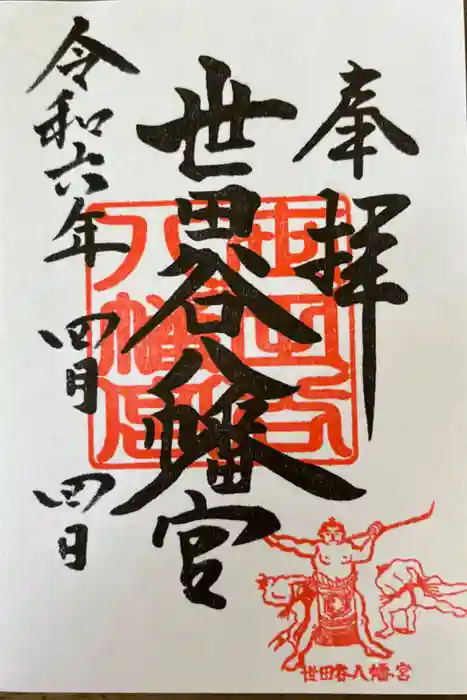 奉拝
世田谷八幡宮
令和六年四月四日
世田谷
八幡宮
世田谷八幡宮